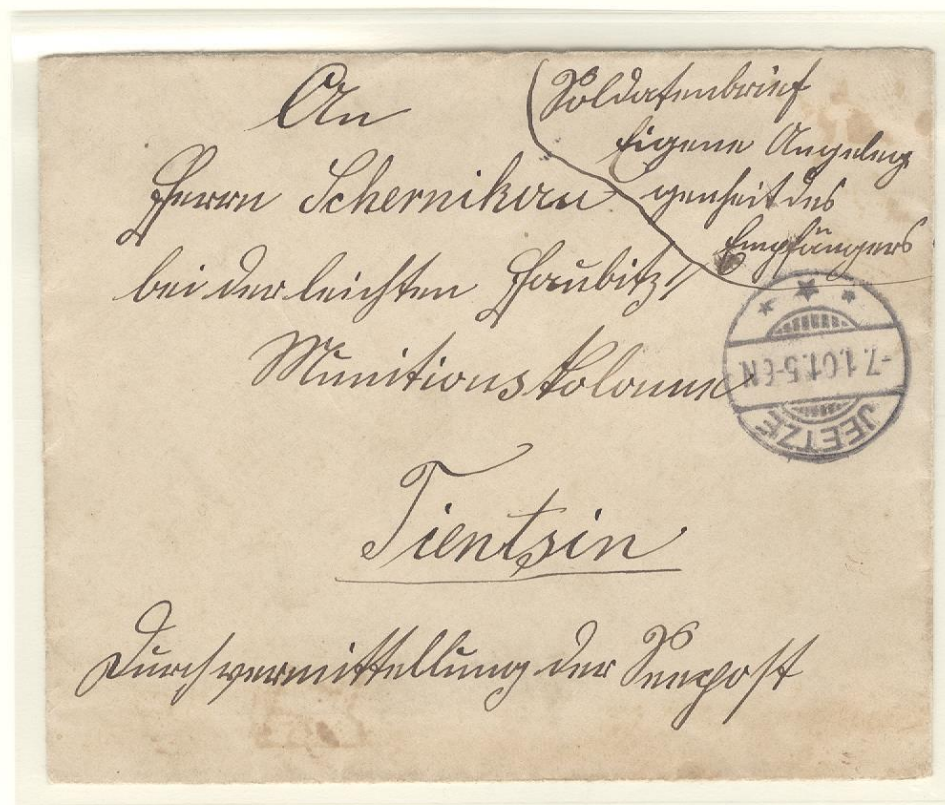 An
Herrn Schernikau
bei der leichten Haubitz//
Munitionskolonne
Tientsin
Durchvermittellung der Seepost
Soldatenbrief
Eigene Angeleg
genheit des
Empfängers
-7.1.01.5-6N
JEETZE